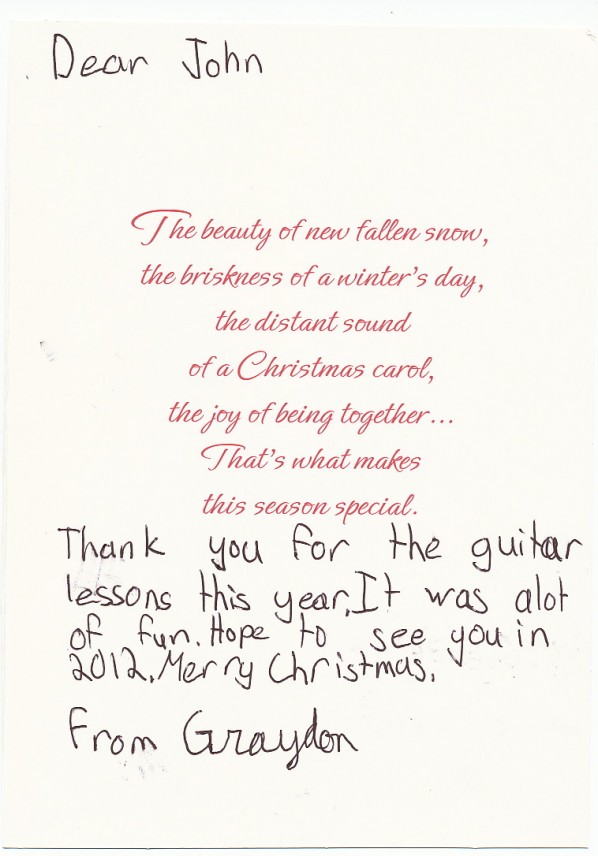 Dear John
The beauty of new fallen snow,
the briskness of a winter's day,
the distant sound
of a Christmas carol,
the joy of being together...
That's what makes
this season special.
Thank you for the guitar
lessons this year. It was alot
of fun. Hope to see you in
2012. Merry Christmas.
From Graydon